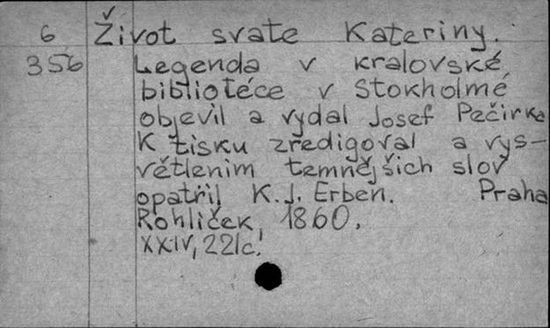 6 Život svate Kateriny.
356 Legenda v kralovské
bibliotéce v Stokholmě
objevil a vydal Josef Pečirka
K tisku zředigoval a vys-
větlenim temnějšich slov
opatřil K. J. Erben. Praha
Rohliček, 1860.
XXIV, 221c.